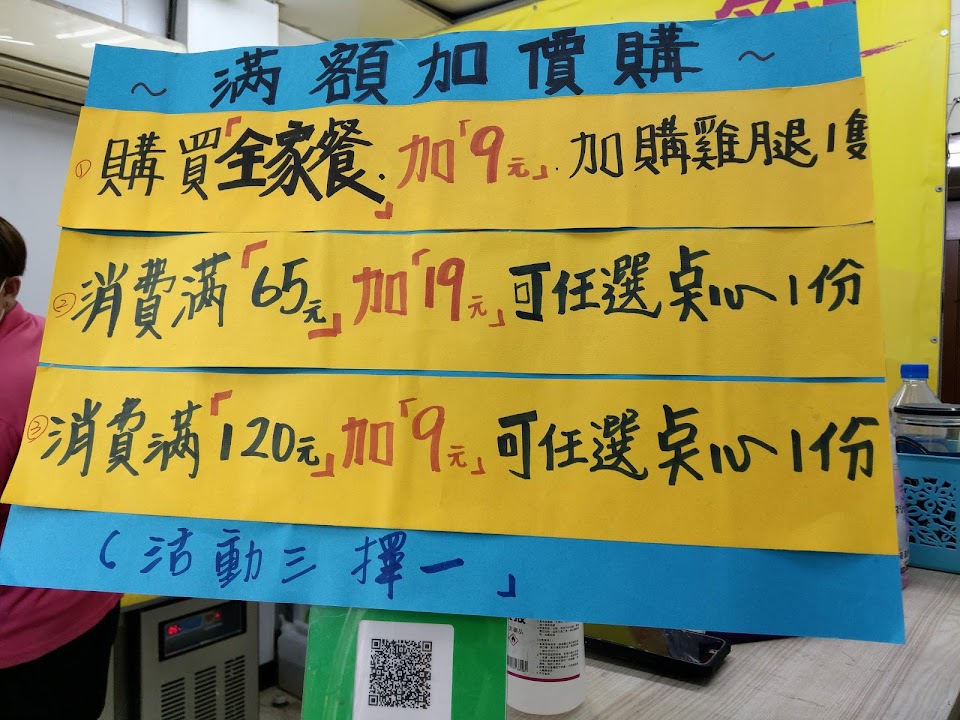 ~ 滿額加價購 ~
① 購買「全家餐」.加「9元」.加購雞腿1隻
② 消費滿「65元」加「19元」可任選点心1份
③ 消費滿「120元」加「9元」可任選点心1份
(活動三擇一」